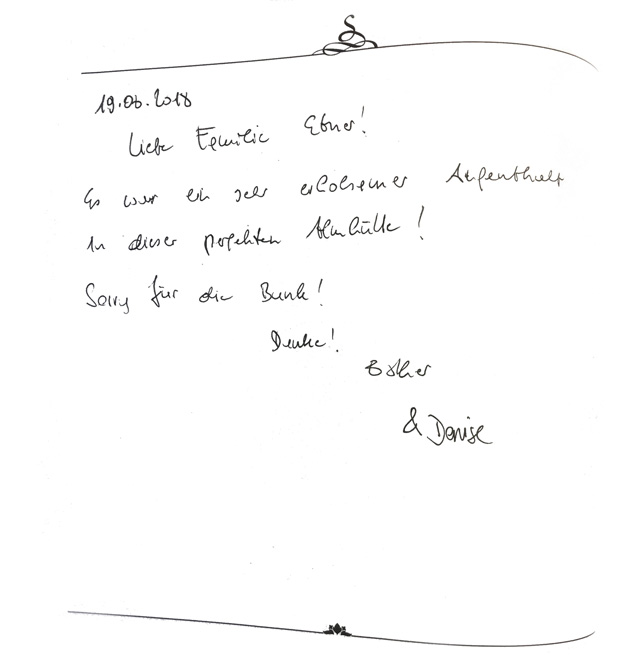 19.06.2018
Liebe Familie Ebner!
Es war ein sehr erholsamer Aufenthalt
in dieser perfekten Almhütte!
Sorry für die Bank!
Danke!
Esther
& Denise